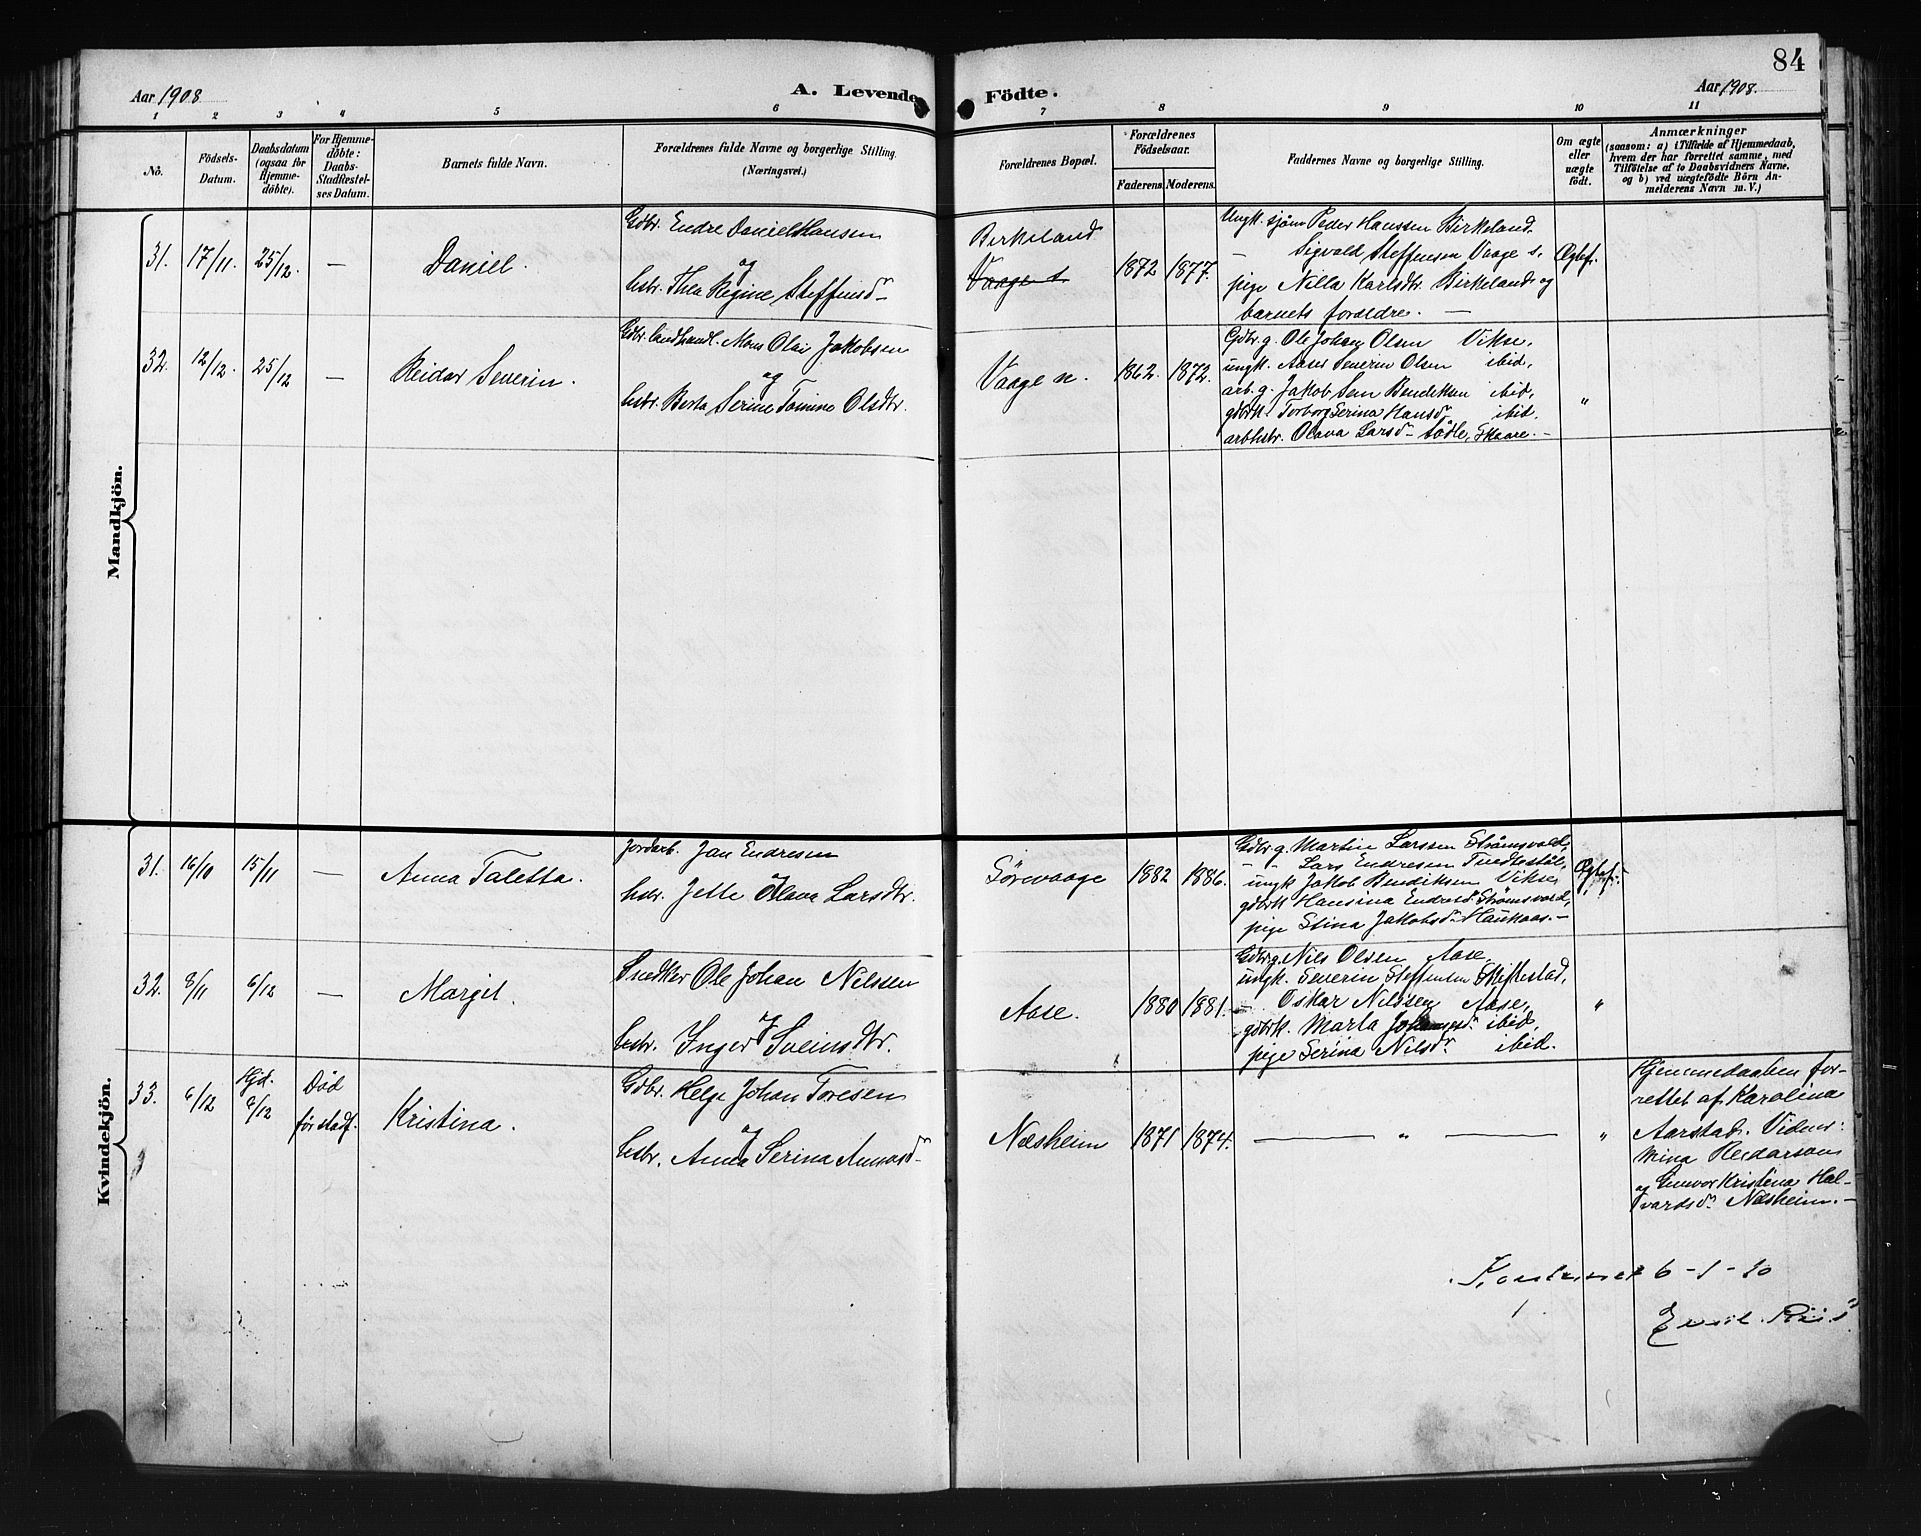 84
Aar 1908
A. Levende Födte.
Aar 1908.
1 2 3 4 5 6 7 8 9 10 11
No.
Födsels-
Datum.
Daabsdatum
(ogsaa for
Hjemme-
döbte).
For Hjemme-
döbte:
Daabs-
Stadfæstel-
ses Datum.
Barnets fulde Navn.
Forældrenes fulde Navne og borgerlige Stilling
(Næringsvei.)
Forældrenes Bopæl.
Forældrenes
Födselsaar.
Faderens. Moderens.
Faddernes Navne og borgerlige Stilling.
Om ægte
eller
uægte
födt.
Anmærkninger
(saasom: a) i Tilfælde af Hjemmedaab,
hvem der har forrettet samme, med
Tilföielse af to Daabsvidners Navne,
og b) ved uægtefödte Börn An-
melderens Navn m. V.)
Mandkjön.
31. 17/11. 25/12. — Daniel.
Gdbr. Endre Daniel Hansen
og
hstr. Thea Regine Steffensdr
Birkeland
Vaage s.
1872 1877.
Ungk. sjöm Peder Hanssen Birkeland.
— Sigvald Steffensen Vaage s.
pige Nilla Karlsdtr. Birkeland og
barnets foreldre. —
Ægtef.
32. 12/12. 25/12 — Reidar Severin.
Gdbr. landhandl. Mons Olai Jakobsen
og
hstr. Berta Serine Tomine Olsdtr.
Vaage n. 1862. 1872.
Gdbr.g. Ole Johan Olsen Vikse,
ungk. Severin Olsen ibid,
arb.g. Jakob Sem Bendiksen ibid,
gdbrk. Torborg Serina Hansdr ibid.
arbhstr. Olava Larsdr Skaare. —
"
Kvindekjön.
31. 16/10 15/11 — Anna Taletta.
Jordarb. Jan Endresen
og
hstr. Jette Olava Larsdtr.
Sörevaage 1882 1886.
Gdbr.g. Martin Larssen Strömsvold,
— - Lars Endresen
ungk Jakob Bendiksen Vikse,
gdbrk Hansina Endresdr Strömsvold,
pige Stina Jakobsdr Haukaas. —
Ægtef.
32. 8/11 6/12 — Margit.
Snedker Ole Johan Nilssen
og
hstr. Inger Sveinsdtr.
Aase. 1880 1881.
Gdbr.g. Nils Olsen Aase,
ungk. Severin Steffensen Skiftestad,
— Oskar Nilssen Aase,
gdbrk. Marta Johannesdr. ibid,
pige Serina Nilsdr. ibid.
"
33. 6/12 Hjd. 6/12 Död
för stadf.
Kristina.
Gdbr. Helge Johan Toresen
og
hstr. Anna Serina Amundsdr
Næsheim 1871 1874. — " — "
Hjemmedaaben for-
rettet af Karolina
Aarstad. Vidner:
Mina Reidarson
og Gunvor Kristina Hal-
vardsdr. Næsheim. —
Konfereret 6-1-10
Emil Riis